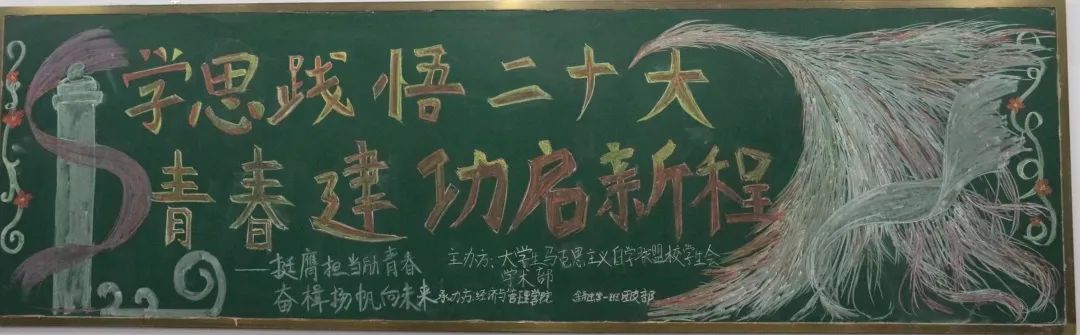 学思践悟二十大
青春建功启新程
——挺膺担当励青春
奋楫扬帆向未来
主办方：大学生马克思主义自学联盟校学生会
学术部
承办方：经济与管理学院 一班团支部